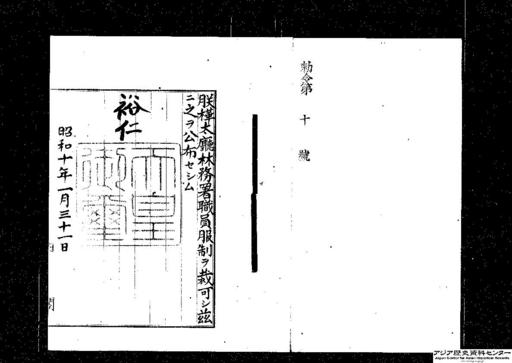 勅令第十號
朕樺太廳林務署職員服制ヲ裁可シ茲
ニ之ヲ公布セシム
裕仁
天皇御璽
昭和十年一月三十一日
内閣
アジア歴史資料センター
Japan Center for Asian Historical Records